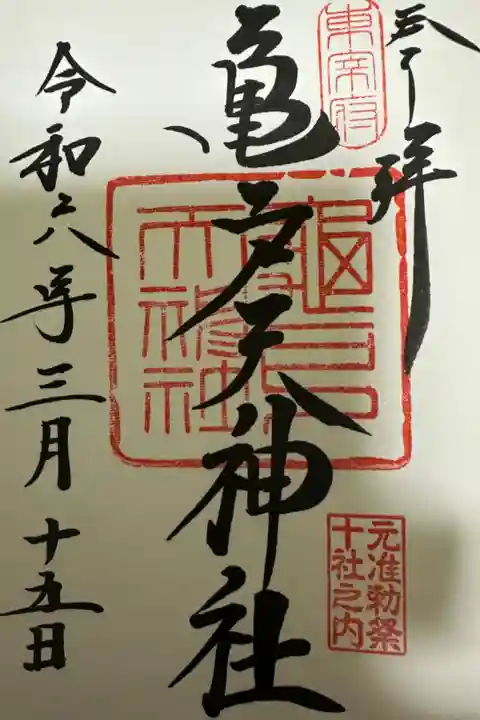 奉拝
東宰府
亀戸天神社
元准勅祭
十社之内
令和六年三月十五日